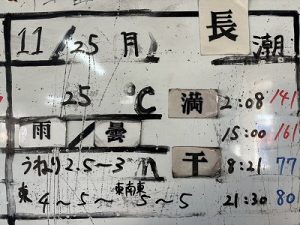 11/25 月 長潮
25 ℃ 満 2:08 141
雨/曇 15:00 161
うねり2.5～3m 干 8:21 77
東 4～5～東南東5～ 21:30 80